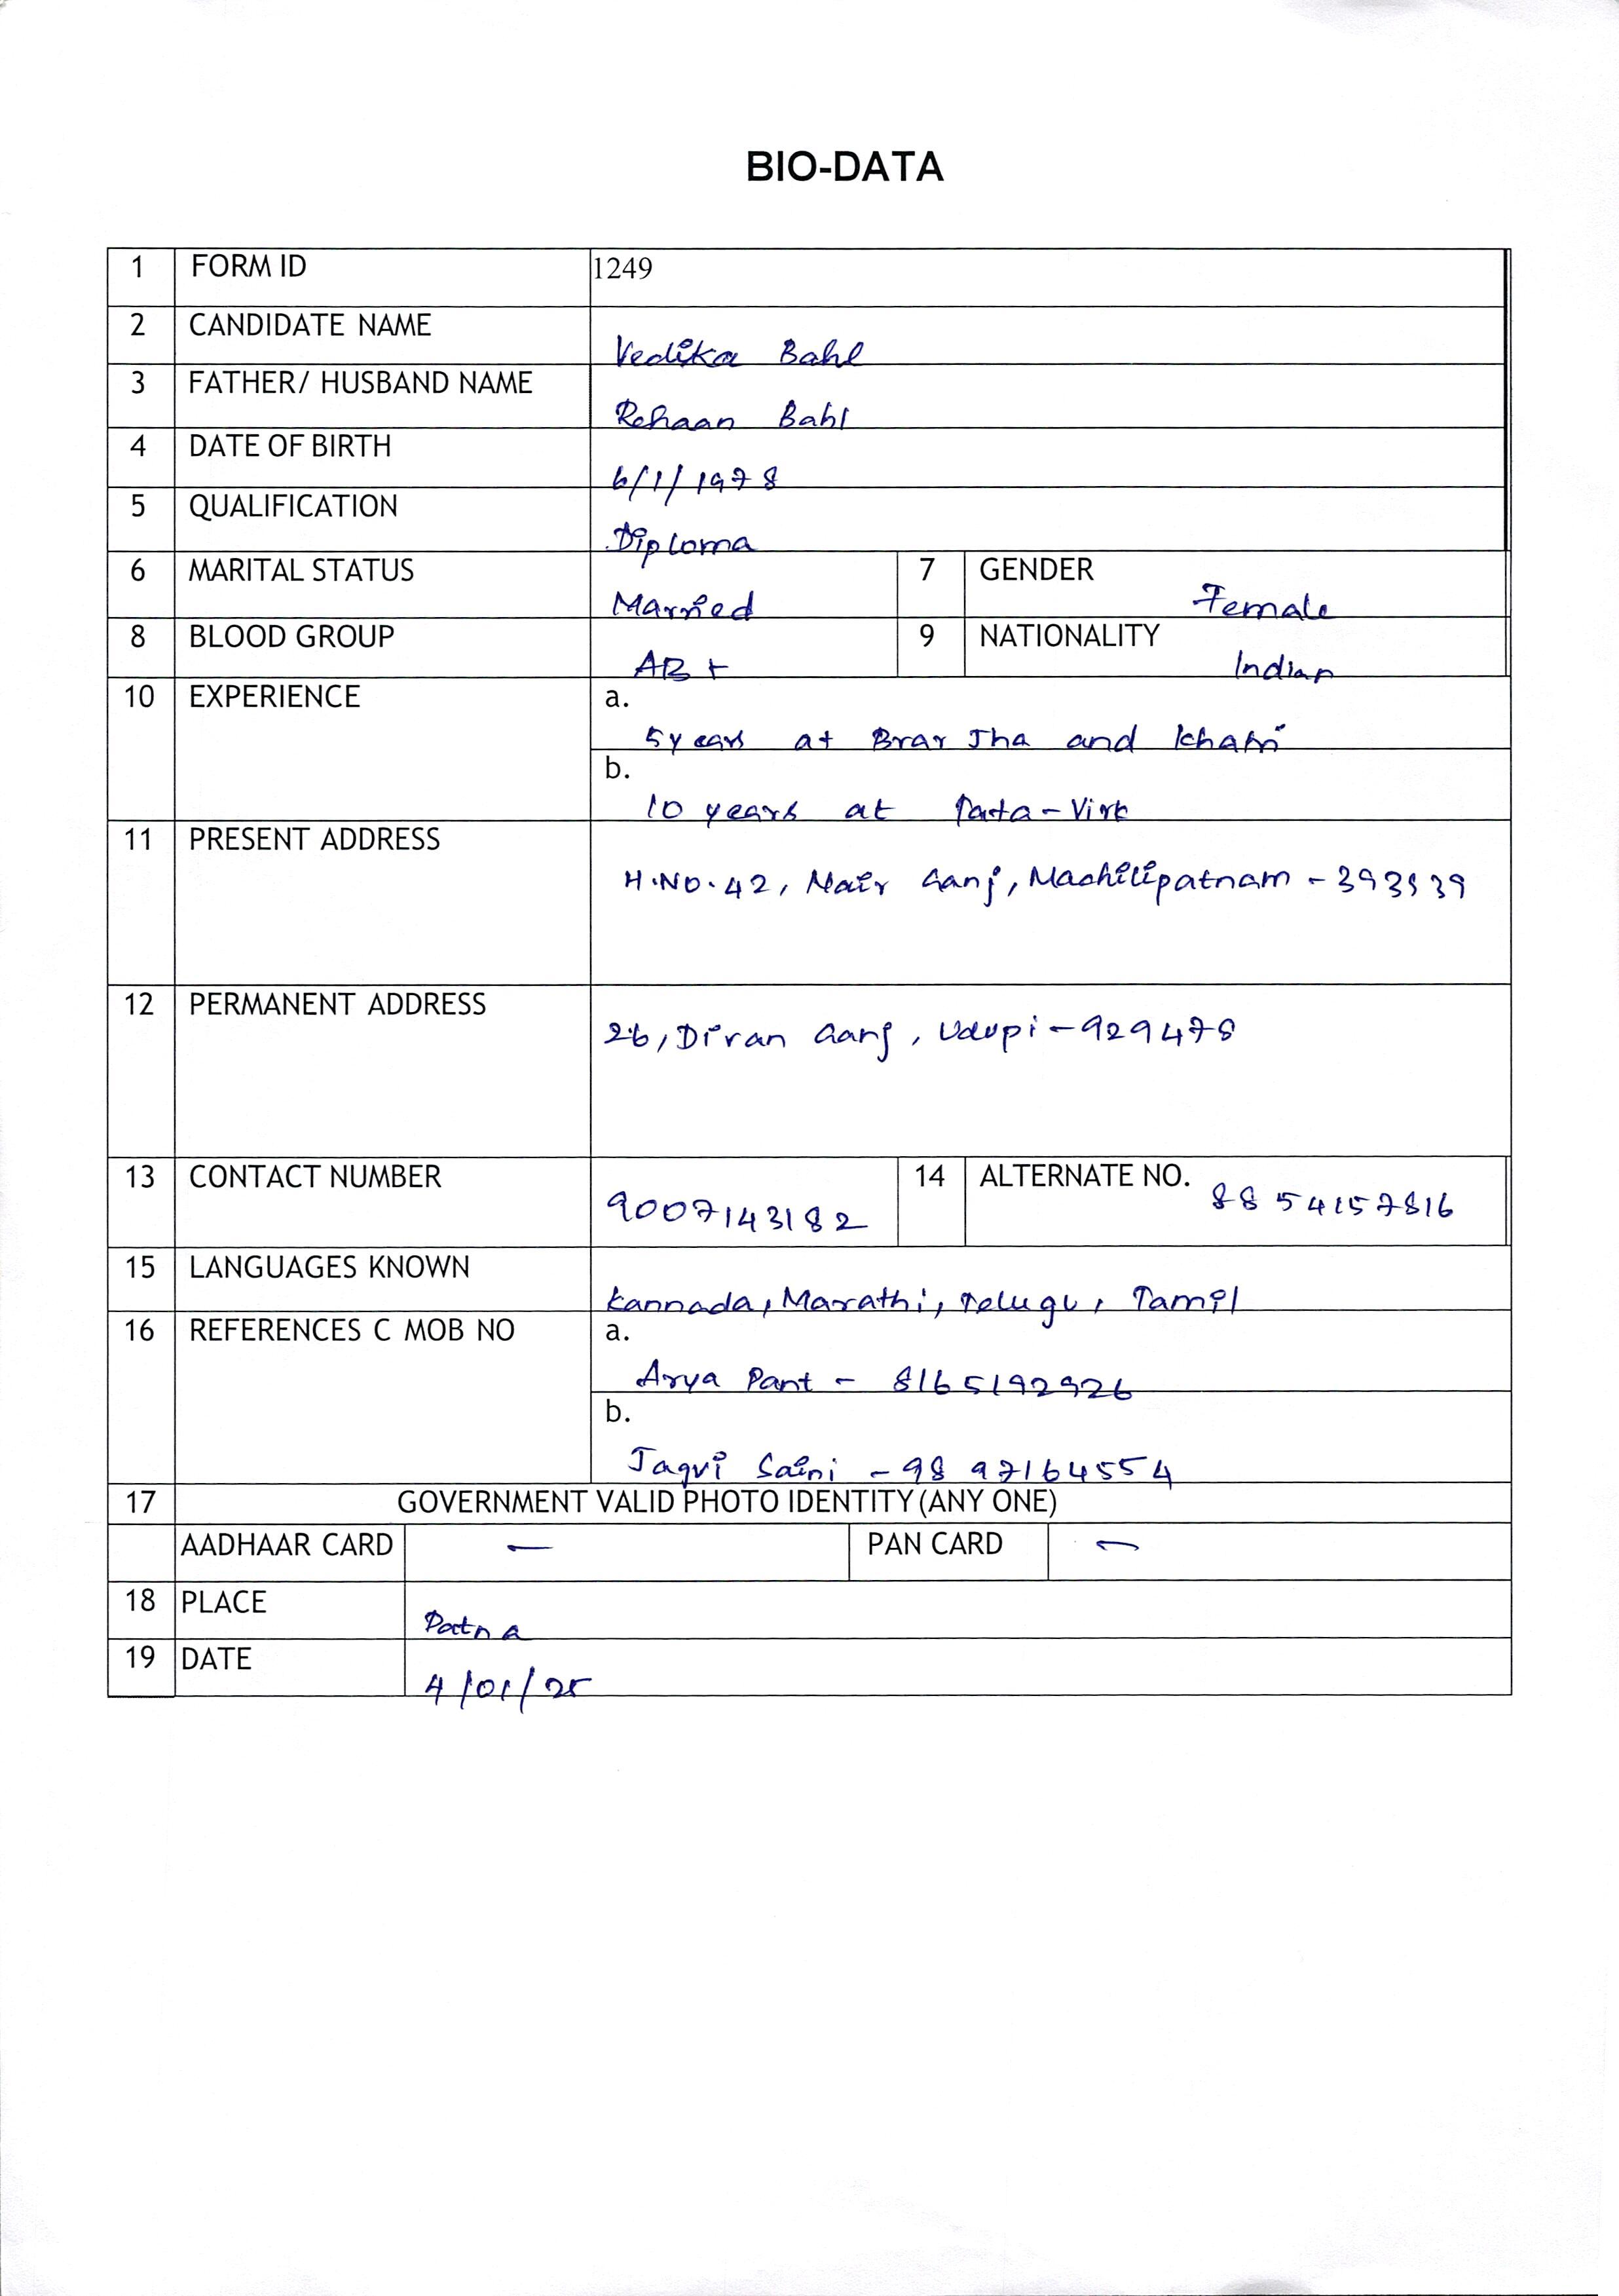 BIO-DATA
1 FORM ID 1249
2 CANDIDATE NAME Vedika Bahl
3 FATHER/ HUSBAND NAME Rehaan Bahl
4 DATE OF BIRTH 6/1/1978
5 QUALIFICATION Diploma
6 MARITAL STATUS Married 7 GENDER Female
8 BLOOD GROUP AB+ 9 NATIONALITY Indian
10 EXPERIENCE a.
5 years at Brar Jha and Khatri
b.
10 years at Tata-Virk
11 PRESENT ADDRESS
H.NO.42, Nair Ganj, Machilipatnam - 393939
12 PERMANENT ADDRESS
26, Divan Ganj, Udupi - 929478
13 CONTACT NUMBER 9007143182 14 ALTERNATE NO. 8854157816
15 LANGUAGES KNOWN Kannada, Marathi, Telugu, Tamil
16 REFERENCES C MOB NO a.
Arya Pant - 8165192926
b.
Jagvi Saini - 9897164554
17 GOVERNMENT VALID PHOTO IDENTITY (ANY ONE)
AADHAAR CARD - PAN CARD -
18 PLACE Patna
19 DATE 4/01/25